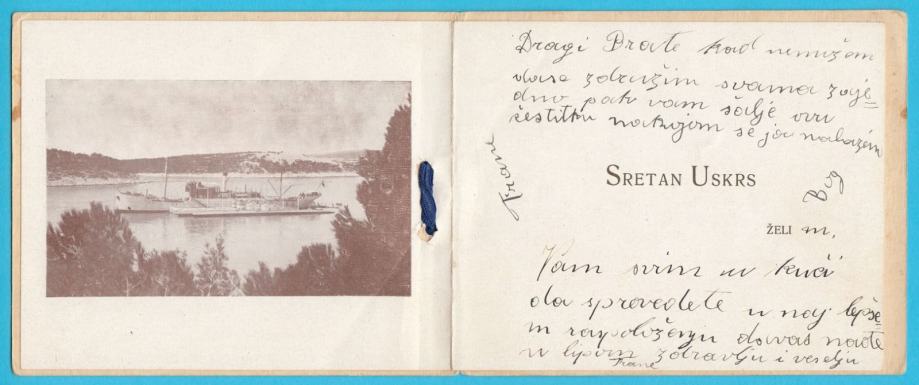 Dragi Brate kad nemožem
dase združim svama zaje=
dno pak vam šalje ovu
čestitku nakojem se ja nahazem
Frane
SRETAN USKRS
Bog
ŽELI m.
Vam svim u kući
da sprovedete u naj lepše=
m raspoloženju davas nađe
u lipom zdravlju i veselju
Frane